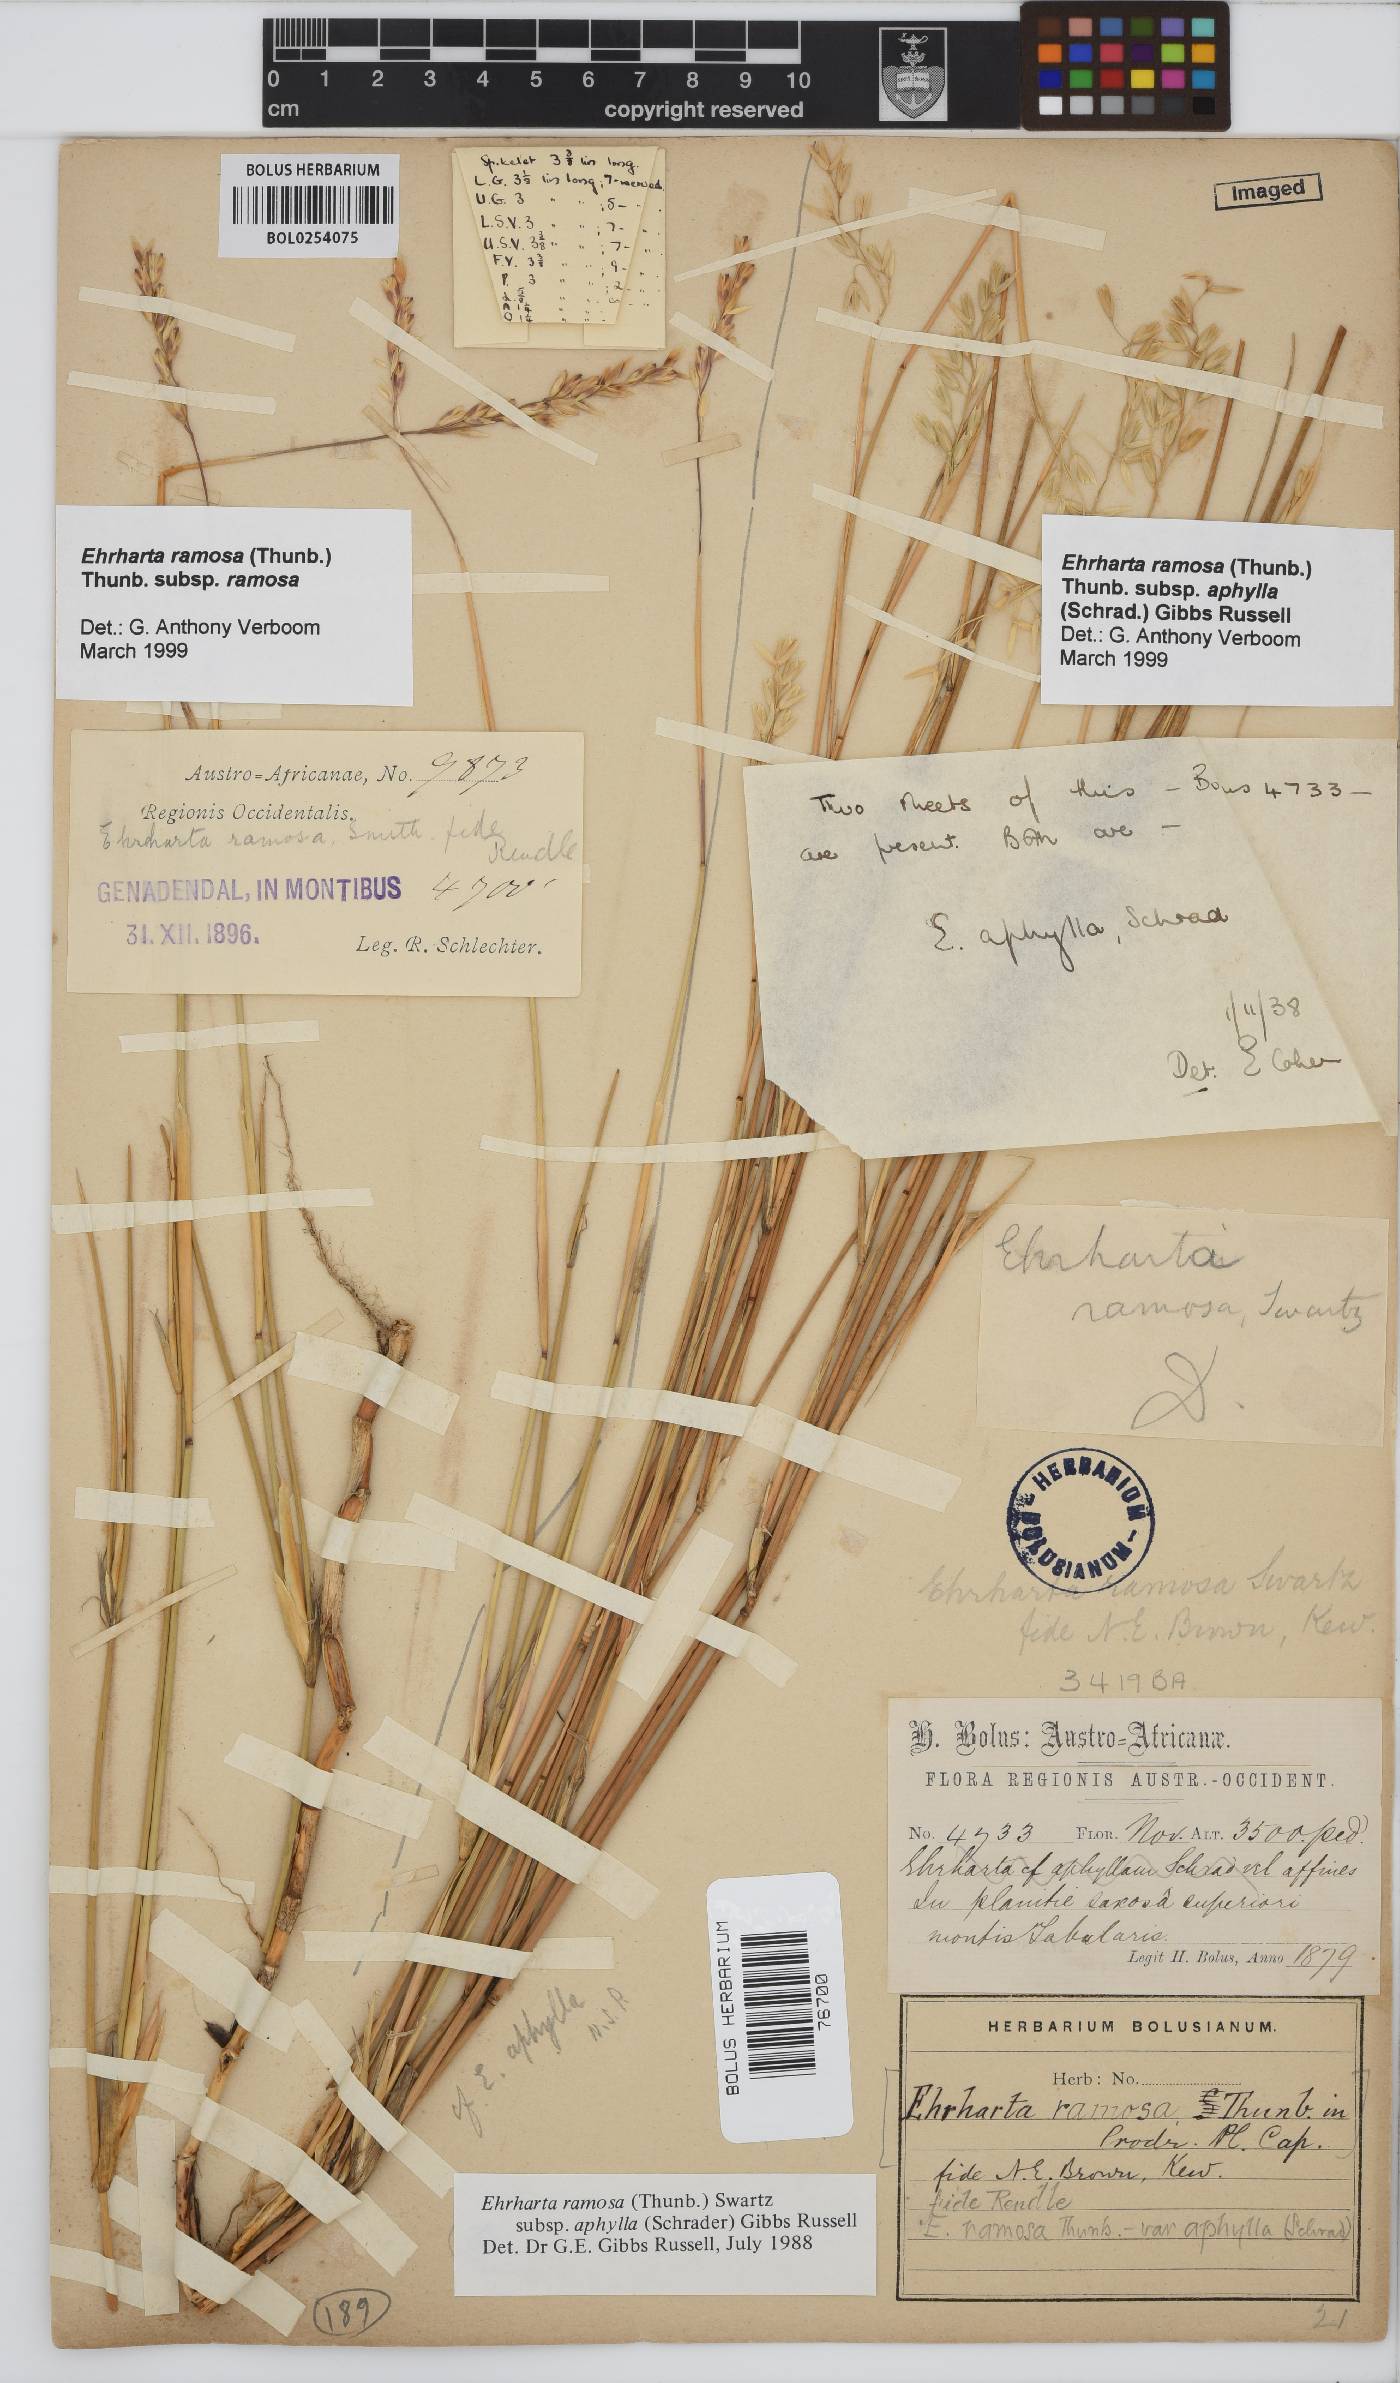 0 1 2 3 4 5 6 7 8 9 10
cm
copyright reserved
BOLUS HERBARIUM
BOL0254075
Spikelet 3 3/8 lin long.
L.G. 3 1/2 lin long; 7-nerved
U.G. 3 " " ; 5- "
L.S.V. 3 " " ; 7- "
U.S.V. 3 3/8 " " ; 7- "
F.V. 3 3/8 " " ; 9- "
P. 3 " " ; 2- "
Imaged
Ehrharta ramosa (Thunb.)
Thunb. subsp. ramosa
Det.: G. Anthony Verboom
March 1999
Ehrharta ramosa (Thunb.)
Thunb. subsp. aphylla
(Schrad.) Gibbs Russell
Det.: G. Anthony Verboom
March 1999
Austro=Africanae, No. 9873
Regionis Occidentalis.
Ehrharta ramosa, Smith. fide
Rendle
GENADENDAL, IN MONTIBUS 4700'
31. XII. 1896.
Leg. R. Schlechter.
Two sheets of this - Bolus 4733 -
are present. Both are -
E. aphylla, Schrad
1/11/38
Det. E Cohen
Ehrharta
ramosa, Swartz
D.
HERBARIUM BOLUSIANUM
Ehrharta ramosa Swartz
fide N.E. Brown, Kew.
3419BA
H. Bolus: Austro=Africanæ.
FLORA REGIONIS AUSTR.-OCCIDENT.
No. 4733 FLOR. Nov. ALT. 3500 ped.
Ehrharta cf aphyllam Schrad vel affines
In planitie saxosâ superiori
montis Tabularis.
Legit H. Bolus, Anno 1879.
BOLUS HERBARIUM
78700
cf. E. aphylla
N.S.P.
HERBARIUM BOLUSIANUM.
Herb: No.
Ehrharta ramosa, Thunb. in
Prodr. Pl. Cap.
fide N.E. Brown, Kew.
fide Rendle
E. ramosa Thunb. - var aphylla (Schrad)
Ehrharta ramosa (Thunb.) Swartz
subsp. aphylla (Schrader) Gibbs Russell
Det. Dr G.E. Gibbs Russell, July 1988
189
21